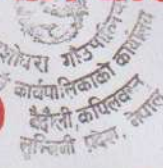 यशोधरा गाउँपालिका
कार्यपालिकाको कार्यालय
कपिलवस्तु
लुम्बिनी प्रदेश, नेपाल